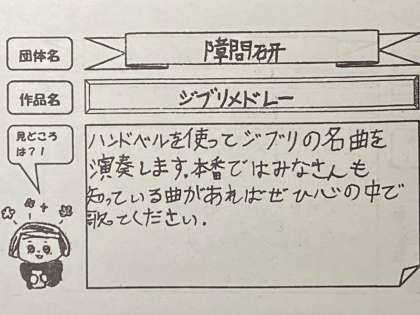 団体名
障問研
作品名
ジブリメドレー
見どころ
は?!
ハンドベルを使ってジブリの名曲を
演奏します。本番ではみなさんも
知っている曲があればぜひ心の中で
歌ってください。